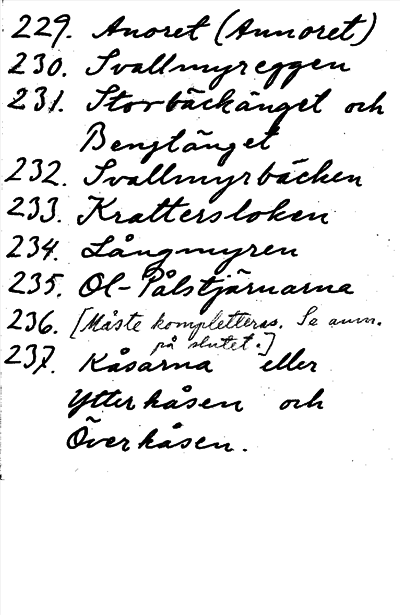 229. Anoret (Annoret)
230. Svallmyreggen
231. Storbäckänget och
Bengtänget
232. Svallmyrbäcken
233. Krattersloken
234. Långmyren
235. Ol-Pålstjärnarna
236. [Måste kompletteras. Se anm.
på slutet.]
237. Kåsarna eller
Ytterkåsen och
Överkåsen.